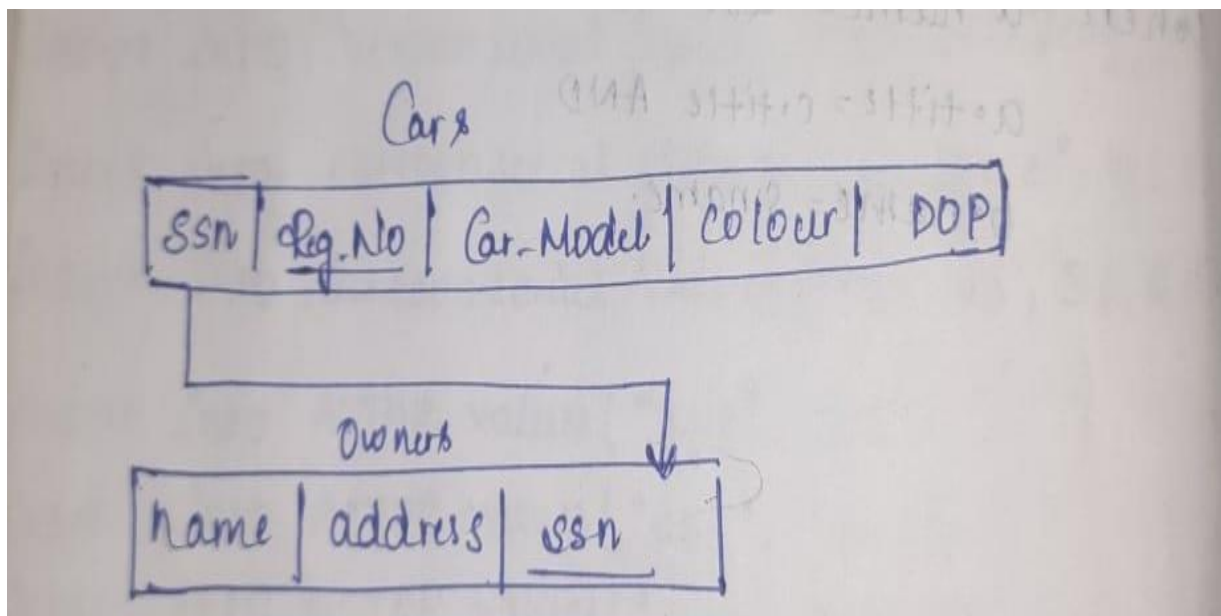 Cars
ssn Reg.No Car-Model Colour DOP
Owners
name address ssn